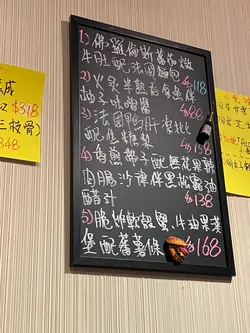 成
$318
三枝骨)
348
1) 佛羅倫斯蕃茄燴
牛肚配法國麵包 $118
2) 火炙半熟吞拿魚伴
柚子味醬
3) 法國鴨肝凍批
配焦糖梨 $158
4) 香煎帶子配無花果鴨
肉腸沙律伴黑松露油
醋汁 $138
5) 脆炸軟殼蟹牛油果菜
堡配蕃薯條 $168